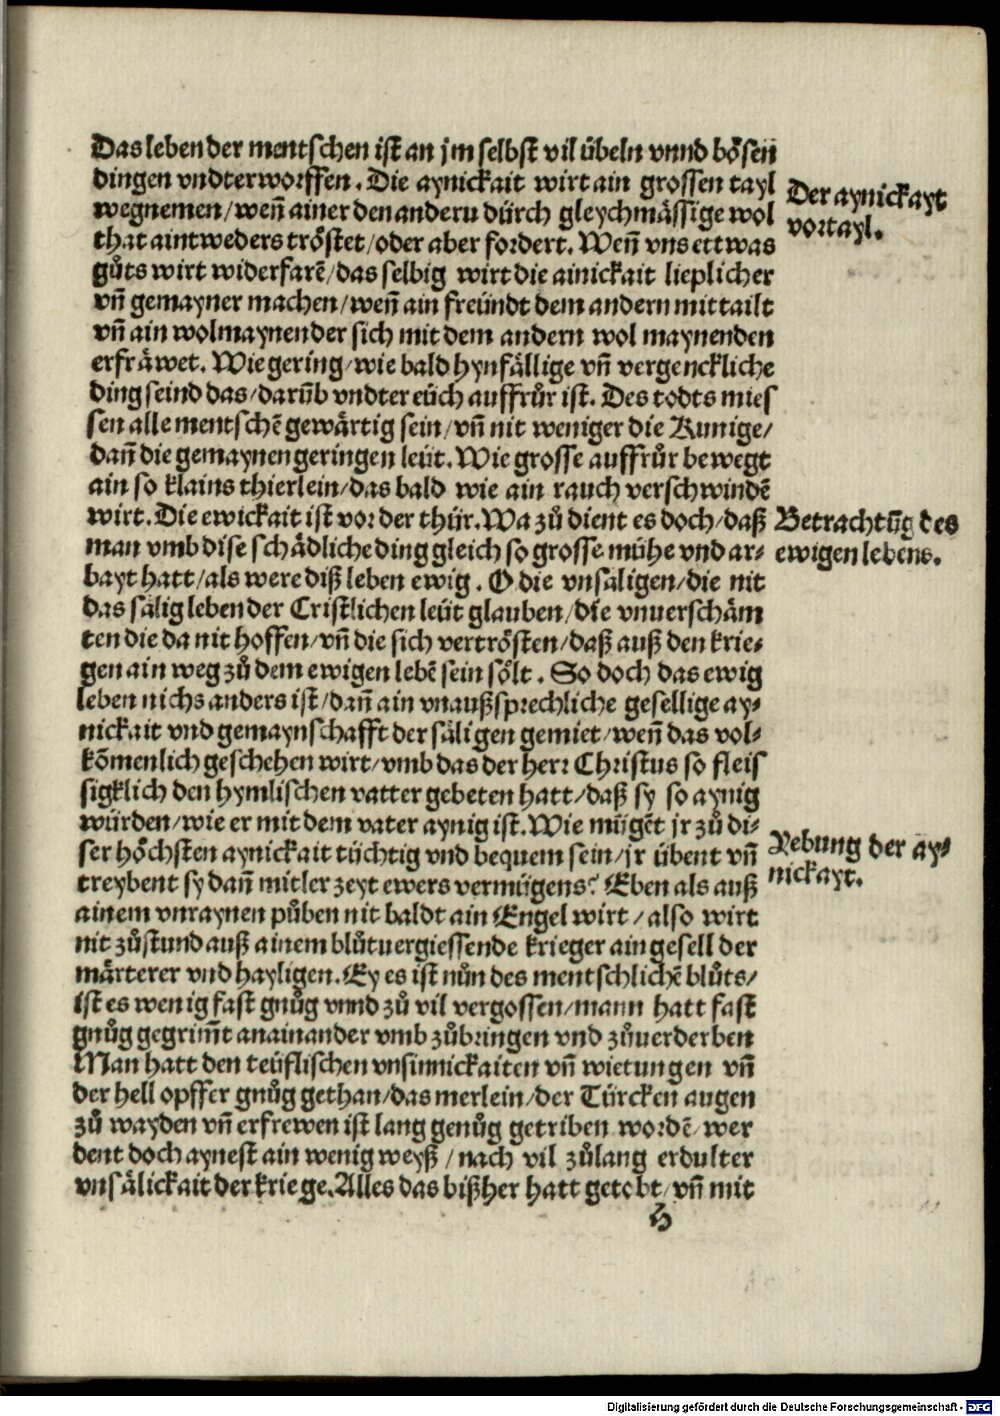 Das leben der mentschen ist an jm selbst vil übeln vnnd bösen
dingen vndterworffen. Die aynickait wirt ain grossen tayl
wegnemen/ weñ ainer den anderu dürch gleychmässige wol
that aintweders tröstet/ oder aber fordert. Weñ vns ettwas
gůts wirt widerfarẽ/ das selbig wirt die ainickait lieplicher
vñ gemayner machen/ weñ ain freündt dem andern mittailt
vñ ain wolmaynender sich mit dem andern wol maynenden
erfräwet. Wie gering/ wie bald hynfällige vñ vergenckliche
ding seind das/ darũb vndter eüch auffrůr ist. Des todts mies
sen alle mentschẽ gewärtig sein/ vñ nit weniger die Kunige/
dañ die gemaynen geringen leüt. Wie grosse auffrůr bewegt
ain so klains thierlein/ das bald wie ain rauch verschwindẽ
wirt. Die ewickait ist vor der thür. Wa zů dient es doch/ daß
man vmb dise schädliche ding gleich so grosse mühe vnd ar-
bayt hatt/ als were diß leben ewig. O die vnsäligen/ die nit
das sälig leben der Cristlichen leüt glauben/ die vnuerschäm
ten die da nit hoffen/ vñ die sich vertrösten/ daß auß den krie-
gen ain weg zů dem ewigen lebẽ sein sölt. So doch das ewig
leben nichs anders ist/ dañ ain vnaußsprechliche gesellige ay-
nickait vnd gemaynschafft der säligen gemiet/ weñ das vol-
kõmenlich geschehen wirt/ vmb das der herr Christus so fleis
sigklich den hymlischen vatter gebeten hatt/ daß sy so aynig
würden/ wie er mit dem vater aynig ist. Wie mügẽt jr zů di-
ser höchsten aynickait tüchtig vnd bequem sein/ jr übent vñ
treybent sy dañ mitler zeyt ewers vermügens? Eben als auß
ainem vnraynen půben nit baldt ain Engel wirt/ also wirt
nit zůstund auß ainem blůtuergiessende krieger ain gesell der
märterer vnd hayligen. Ey es ist nůn des mentschlichẽ blůts/
ist es wenig fast gnůg vnnd zů vil vergossen/ mann hatt fast
gnůg gegrim̃t anainander vmb zůbringen vnd zůuerderben
Man hatt den teüflischen vnsinnickaiten vñ wietungen vñ
der hell opffer gnůg gethan/ das merlein/ der Türcken augen
zů wayden vñ erfrewen ist lang genůg getriben wordẽ/ wer
dent doch aynest ain wenig weyß/ nach vil zůlang erdulter
vnsälickait der kriege. Alles das bißher hatt getobt/ vñ mit
H
Der aynickayt
vortayl.
Betrachtũg des
ewigen lebens.
Vebung der ay-
nickayt.
Digitalisierung gefördert durch die Deutsche Forschungsgemeinschaft - DFG